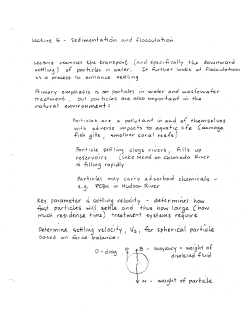 Lecture 5 - Sedimentation and flocculation
Lecture examines the transport (and specifically the downward
settling) of particles in water. It further looks at flocculation
as a process to enhance settling
Primary emphasis is on particles in water and wastewater
treatment, but particles are also important in the
natural environment:
Particles are a pollutant in and of themselves
with adverse impacts to aquatic life (damage
fish gills, smother coral reefs)
Particle settling clogs rivers, fills up
reservoirs (Lake Mead on Colorado River
is filling rapidly
Particles may carry adsorbed chemicals -
e.g. PCBs in Hudson River
Key parameter is settling velocity - determines how
fast particles will settle and thus how large (how
much residence time) treatment systems require
Determine settling velocity, Vs, for spherical particle
based on force balance:
D - drag
B - buoyancy = weight of
displaced fluid
W - weight of particle